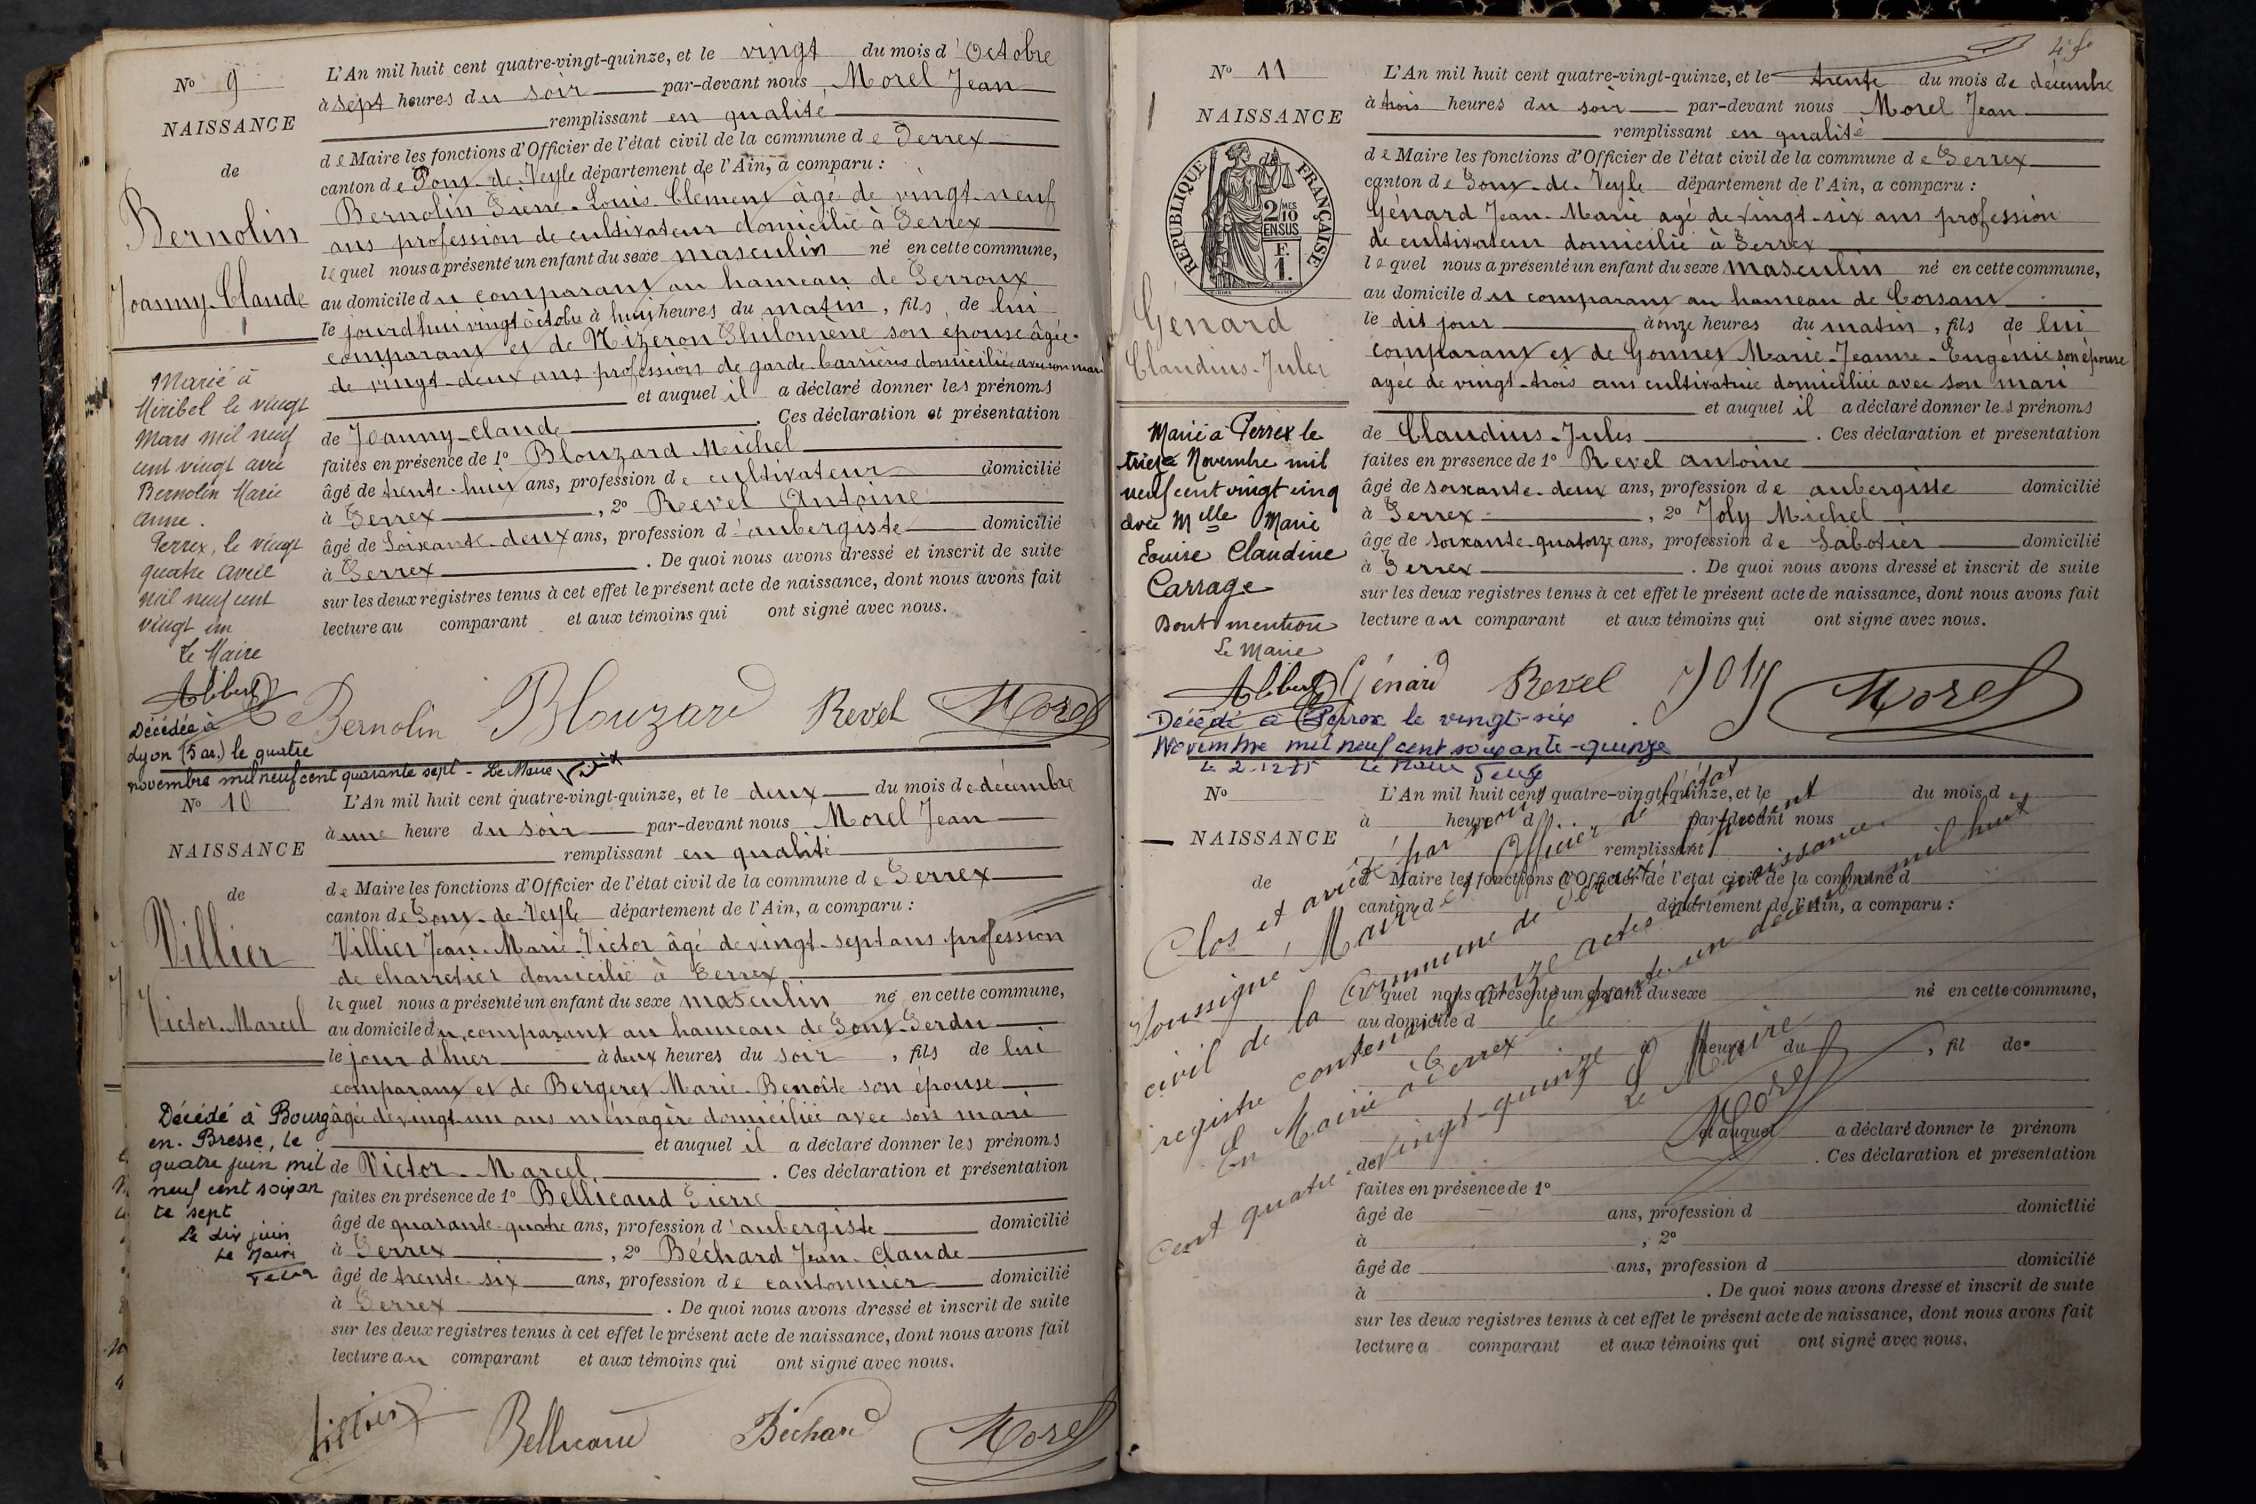 No 9
NAISSANCE
de
Bernolin
Joanny-Claude
L'An mil huit cent quatre-vingt-quinze, et le vingt du mois d'Octobre
à sept heures du soir par-devant nous, Morel Jean
remplissant en qualité
de Maire les fonctions d'Officier de l'état civil de la commune de Perrex
canton de Pont-de-Veyle département de l'Ain, a comparu :
Bernolin Pierre-Louis-Clément âgé de vingt-neuf
ans profession de cultivateur domicilié à Perrex
lequel nous a présenté un enfant du sexe masculin né en cette commune,
au domicile du comparant au hameau de Perroux
le jourd'hui vingt octobre à huit heures du matin, fils de lui
comparant et de Nizeron Philomène son épouse âgée
de vingt-deux ans profession de garde-barrières domiciliée avec son mari
et auquel il a déclaré donner les prénoms
de Joanny-Claude. Ces déclaration et présentation
faites en présence de 1o Blouzard Michel
âgé de trente-huit ans, profession de cultivateur domicilié
à Perrex, 2o Revel Antoine
âgé de soixante-deux ans, profession d'aubergiste domicilié
à Perrex. De quoi nous avons dressé et inscrit de suite
sur les deux registres tenus à cet effet le présent acte de naissance, dont nous avons fait
lecture au comparant et aux témoins qui ont signé avec nous.
Marié à
Miribel le vingt
Mars mil neuf
cent vingt avec
Bernolin Marie
Anne.
Perrex, le vingt
quatre avril
mil neuf cent
vingt un
Le Maire
Bernolin Blouzard Revel Morel
Décédée à
Lyon (5 ar.) le quatre
novembre mil neuf cent quarante sept - Le Maire
No 10
NAISSANCE
de
Villier
Victor-Marcel
L'An mil huit cent quatre-vingt-quinze, et le deux du mois de décembre
à une heure du soir par-devant nous Morel Jean
remplissant en qualité
de Maire les fonctions d'Officier de l'état civil de la commune de Perrex
canton de Pont-de-Veyle département de l'Ain, a comparu :
Villier Jean-Marie-Victor âgé de vingt-sept ans profession
de charretier domicilié à Perrex
lequel nous a présenté un enfant du sexe masculin né en cette commune,
au domicile du comparant au hameau de Pont-Perdu
le jour d'hier à deux heures du soir, fils de lui
comparant et de Bergeret Marie-Benoîte son épouse
âgée de vingt-un ans ménagère domiciliée avec son mari
et auquel il a déclaré donner les prénoms
de Victor-Marcel. Ces déclaration et présentation
faites en présence de 1o Bellicaud Pierre
âgé de quarante-quatre ans, profession d'aubergiste domicilié
à Perrex, 2o Béchard Jean-Claude
âgé de trente-six ans, profession de cantonnier domicilié
à Perrex. De quoi nous avons dressé et inscrit de suite
sur les deux registres tenus à cet effet le présent acte de naissance, dont nous avons fait
lecture au comparant et aux témoins qui ont signé avec nous.
Décédé à Bourg
en-Bresse, le
quatre juin mil
neuf cent soixan
te sept
Le dix juin
Le Maire
Villier Bellicaud Béchard Morel
No 11
NAISSANCE
RÉPUBLIQUE FRANÇAISE
2/10 MES
EN SUS
F.
1.
Génard
Claudius-Jules
L'An mil huit cent quatre-vingt-quinze, et le trente du mois de décembre
à trois heures du soir par-devant nous Morel Jean
remplissant en qualité
de Maire les fonctions d'Officier de l'état civil de la commune de Perrex
canton de Pont-de-Veyle département de l'Ain, a comparu :
Génard Jean-Marie agé de vingt-six ans profession
de cultivateur domicilié à Perrex
lequel nous a présenté un enfant du sexe masculin né en cette commune,
au domicile du comparant au hameau de Corsant
le dit jour à onze heures du matin, fils de lui
comparant et de Gonnet Marie-Jeanne-Eugénie son épouse
agée de vingt-trois ans cultivatrice domiciliée avec son mari
et auquel il a déclaré donner les prénoms
de Claudius-Jules. Ces déclaration et présentation
faites en présence de 1o Revel Antoine
âgé de soixante-deux ans, profession de aubergiste domicilié
à Perrex, 2o Joly Michel
âgé de soixante-quatorze ans, profession de sabotier domicilié
à Perrex. De quoi nous avons dressé et inscrit de suite
sur les deux registres tenus à cet effet le présent acte de naissance, dont nous avons fait
lecture au comparant et aux témoins qui ont signé avec nous.
Marié à Perrex le
treize Novembre mil
neuf cent vingt cinq
avec Melle Marie
Louise Claudine
Carrage
Dont mention
Le Maire
Génard Revel Joly Morel
Décédé à Perrex le vingt-six
Novembre mil neuf cent soixante-quinze
Le 2-12-75 Le Maire
No
NAISSANCE
de
L'An mil huit cent quatre-vingt-quinze, et le du mois d
à heure d par-devant nous
remplissant
d Maire les fonctions d'Officier de l'état civil de la commune d
canton d département de l'Ain, a comparu :
l quel nous a présenté un enfant du sexe né en cette commune,
au domicile d
à heure du, fil de
et auquel a déclaré donner le prénom
de. Ces déclaration et présentation
faites en présence de 1o
âgé de ans, profession d domicilié
à, 2o
âgé de ans, profession d domicilié
à. De quoi nous avons dressé et inscrit de suite
sur les deux registres tenus à cet effet le présent acte de naissance, dont nous avons fait
lecture a comparant et aux témoins qui ont signé avec nous.
Clos et arrêté par nous
soussigné, Maire et Officier de l'état
civil de la Commune de Perrex le présent
registre contenant onze actes de naissance.
En Mairie à Perrex le trente-un décembre mil huit
cent quatre-vingt-quinze
Le Maire
Morel